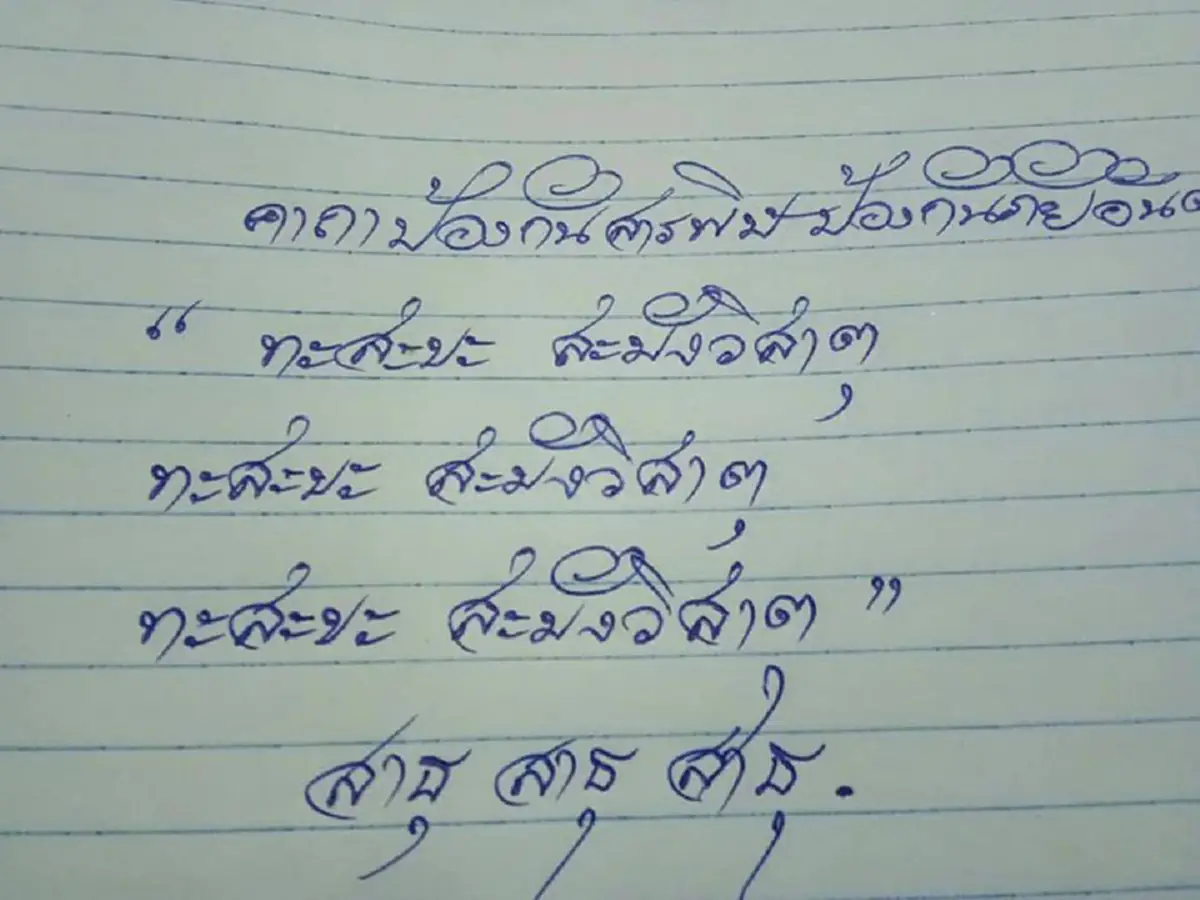 คาถาป้องกันสารพิษ ป้องกันภัยอัน
“ ทะสะยะ สะมังวิสาตุ
ทะสะยะ สะมังวิสาตุ
ทะสะยะ สะมังวิสาตุ ”
สาธุ สาธุ สาธุ .